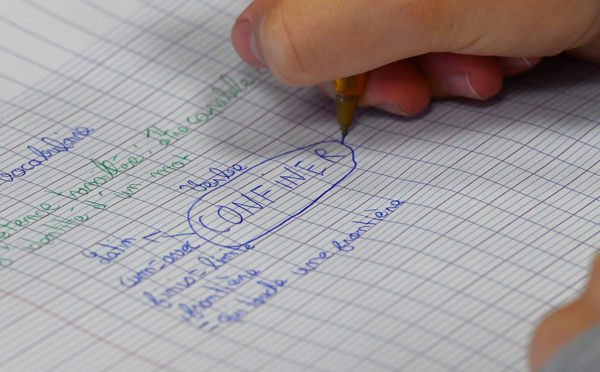 vocabulaire
compétence travaillée : être capable
l'identité d'un mot
verbe
CONFINER
latin =
cum = avec
finis = limite
frontière
= qui touche une frontière